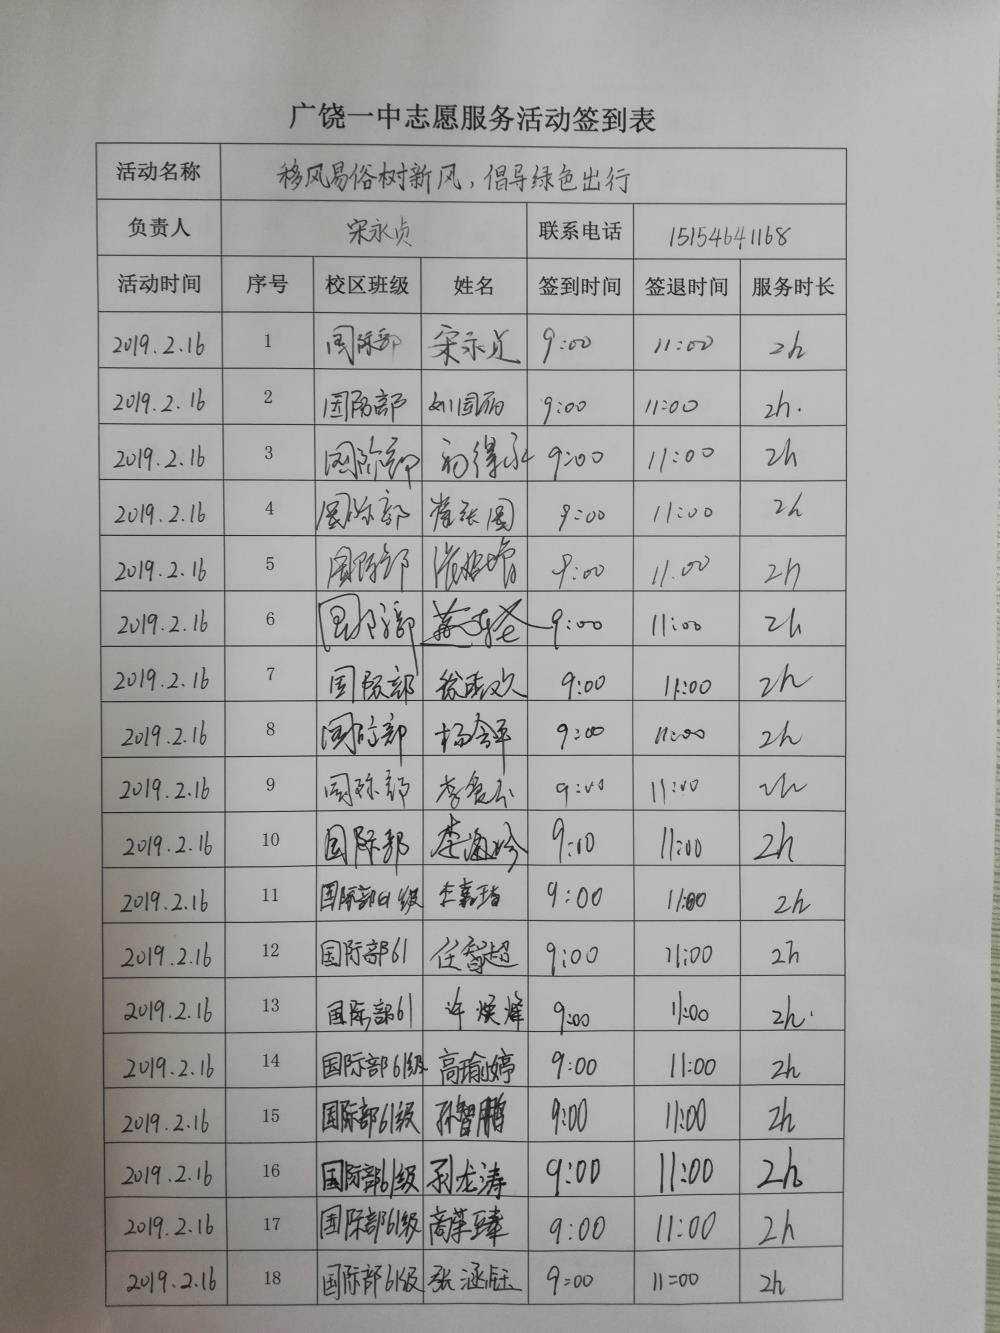 广饶一中志愿服务活动签到表
活动名称 移风易俗树新风，倡导绿色出行
负责人 宋永贞 联系电话 15154641168
活动时间 序号 校区班级 姓名 签到时间 签退时间 服务时长
2019.2.16 1 国际部 宋永贞 9:00 11:00 2h
2019.2.16 2 国际部 9:00 11:00 2h.
2019.2.16 3 国际部 9:00 11:00 2h
2019.2.16 4 国际部 9:00 11:00 2h
2019.2.16 5 国际部 9:00 11.00 2h
2019.2.16 6 国际部 9:00 11:00 2h
2019.2.16 7 国际部 9:00 11:00 2h
2019.2.16 8 国际部 9:00 11:00 2h
2019.2.16 9 国际部 9:00 11:00 2h
2019.2.16 10 国际部 9:00 11:00 2h
2019.2.16 11 国际部61级 9:00 11:00 2h
2019.2.16 12 国际部61 任智超 9:00 11:00 2h
2019.2.16 13 国际部61 许焕烽 9:00 11:00 2h.
2019.2.16 14 国际部61级 高瑜婷 9:00 11:00 2h
2019.2.16 15 国际部61级 孙智鹏 9:00 11:00 2h
2019.2.16 16 国际部61级 孙龙涛 9:00 11:00 2h
2019.2.16 17 国际部61级 9:00 11:00 2h
2019.2.16 18 国际部61级 张涵钰 9:00 11=00 2h